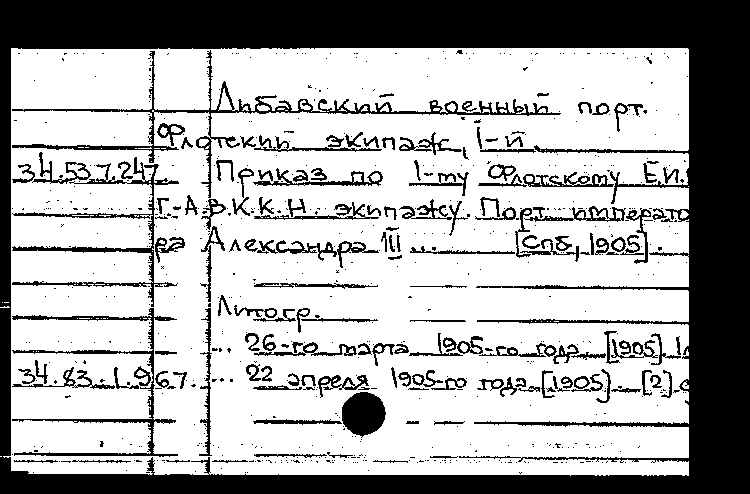 Либавский военный порт.
Флотский экипаж, I-й.
34.53.7.247 Приказ по I-му Флотскому Е.И.
Г.-А.В.К.К.Н. экипажу. Порт императо
ра Александра III ... [Спб, 1905].
Литогр.
... 26-го марта 1905-го года. [1905].
34.83.1.967. ... 22 апреля 1905-го года. [1905]. [2] с